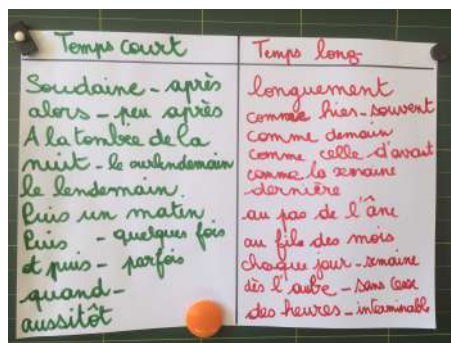 Temps court
Soudaine - après
alors - peu après
A la tombre de la
nuit - le surlendemain
le lendemain.
Puis un matin
Puis - quelques fois
et puis - parfois
quand -
aussitôt
Temps long
longuement
comme hier - souvent
comme demain
comme celle d'avant
comme la semaine
dernière
au pas de l'âne
au fil des mois
chaque jour - semaine
dès l'aube - sans cesse
des heures - interminable